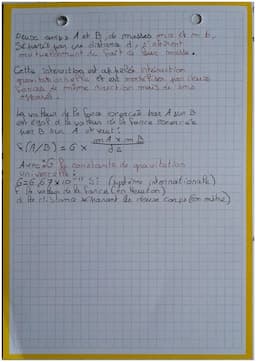 Deux corps A et B, de masses mA et mB,
séparés par une distance d, s'attirent
mutuellement du fait de leur masse.
Cette interaction est appelée interaction
gravitationnelle et est modélisée par deux
forces de même direction mais de sens
opposés.
La valeur de la force exercée par A sur B
est égal à la valeur de la force exercée
par B sur A et vaut :
F(A/B) = G × mA × mB / d2
Avec : G la constante de gravitation
universelle :
G = 6,67 × 10⁻¹¹ SI (système internationale)
F la valeur de la force (en Newton)
d la distance séparant les deux corps (en mètre)